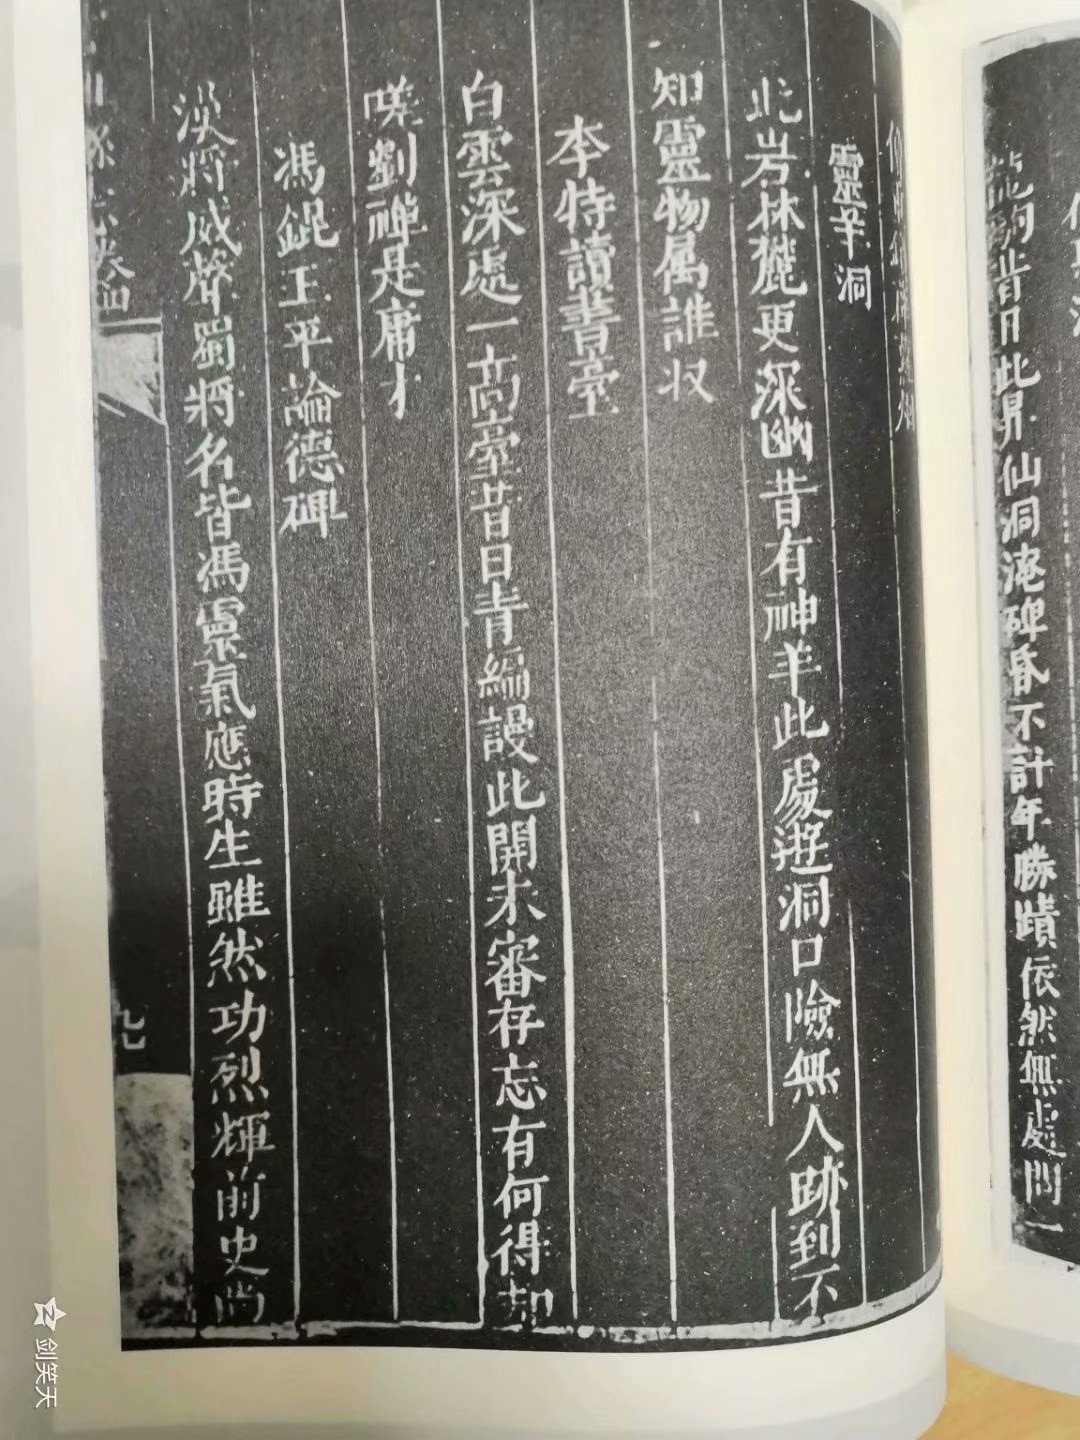 龍駒昔日此昇仙洞淹碑昏不計年勝蹟依然無處問一
靈羊洞
此岩林麓更深幽昔有神羊此處遊洞口險無人跡到不
知靈物属誰收
李特讀書臺
白雲深處一高臺昔日青編謾此開未審存忘有何得却
嘆劉禅是庸才
馮錕王平論德碑
漢將威聲蜀將名皆馮靈氣應時生雖然功烈輝前史尚
九
剑笑天